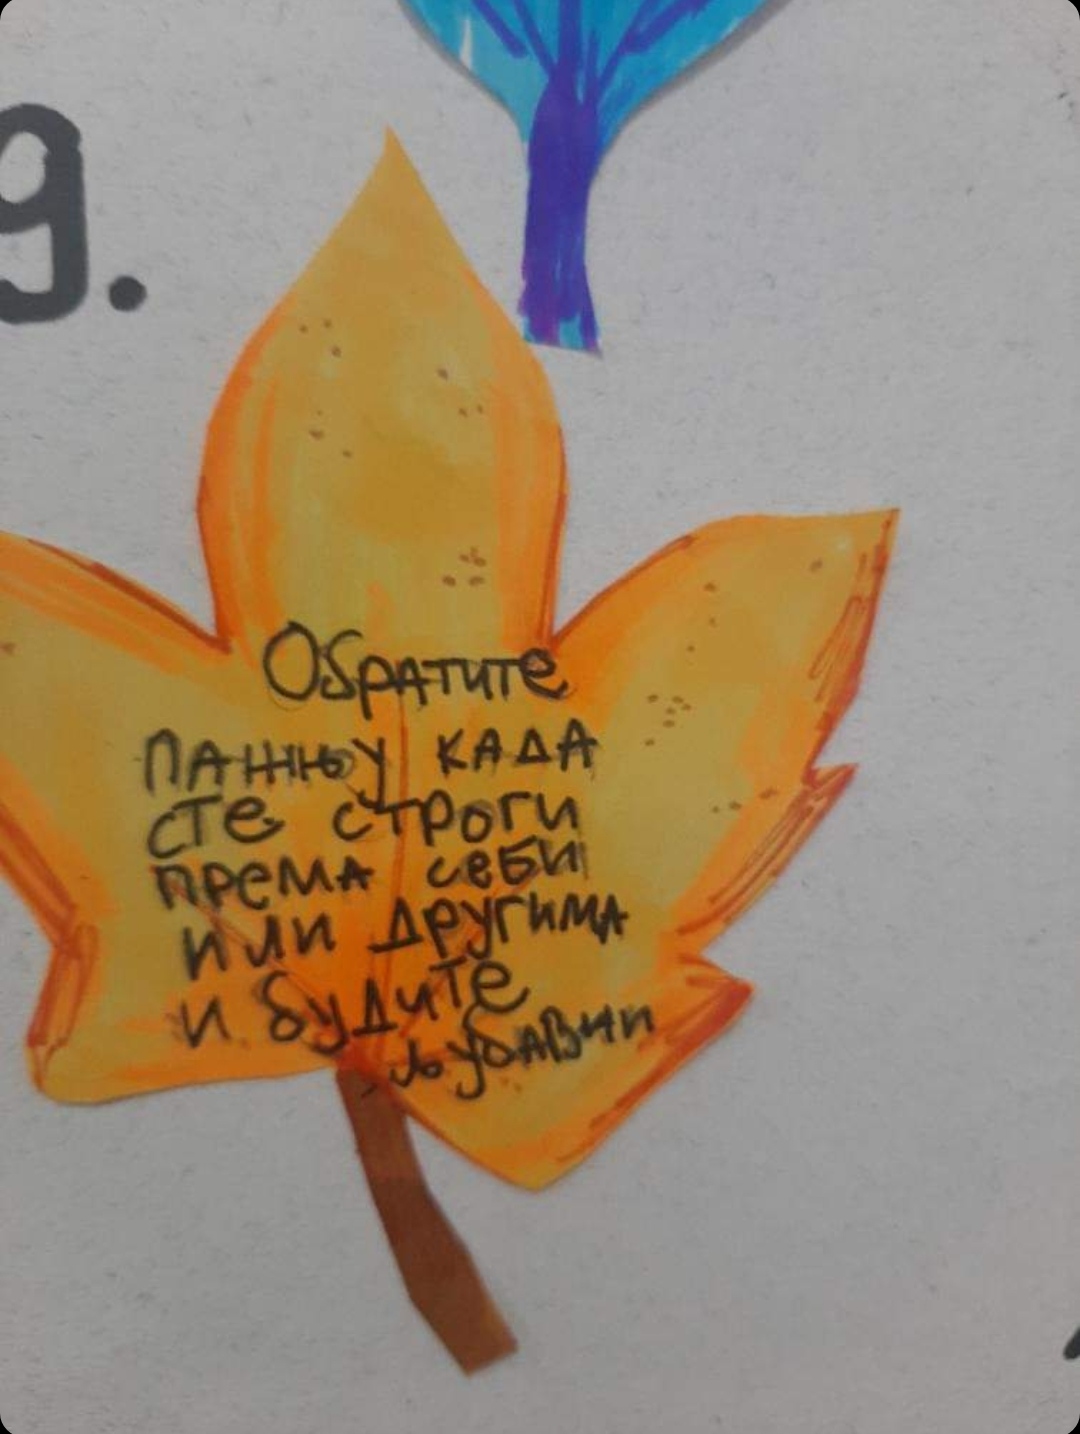 9.
Обратите
пажњу када
сте строги
према себи
или другима
и будите
љубавни